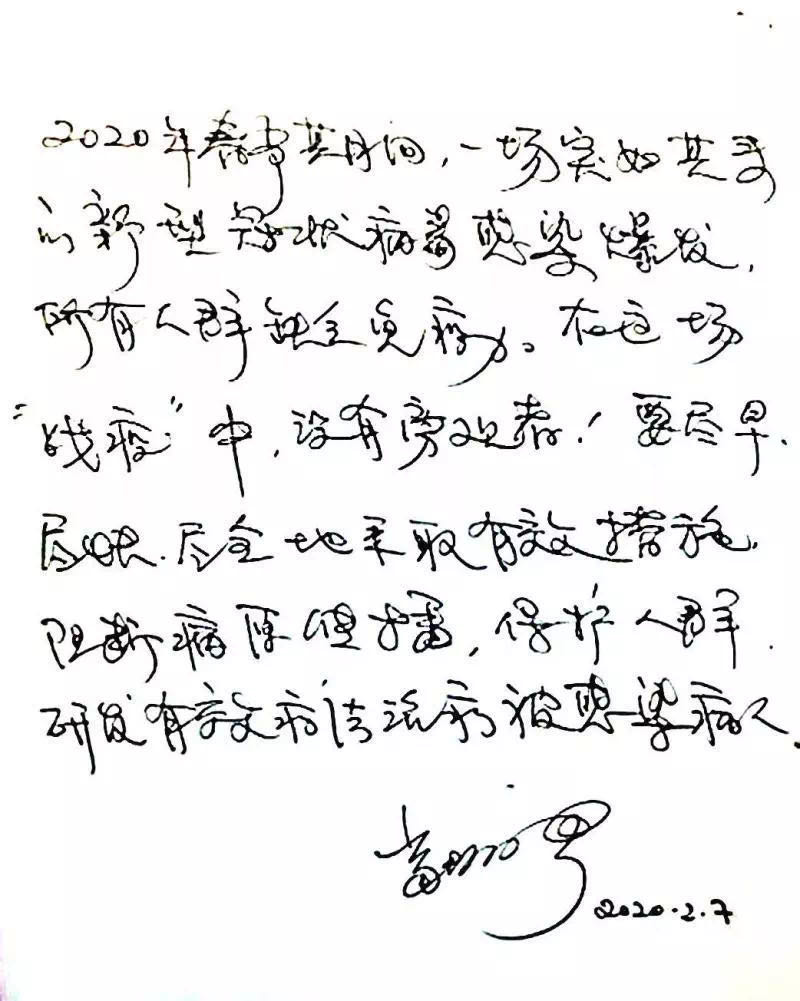 2020年春节期间，一场突如其来
的新型冠状病毒感染爆发，
所有人群缺乏免疫力。在这场
“战疫”中，没有旁观者！要尽早、
尽快、尽全地采取有效措施，
阻断病原传播，保护人群，
研发有效疗法治疗被感染病人
2020.2.7